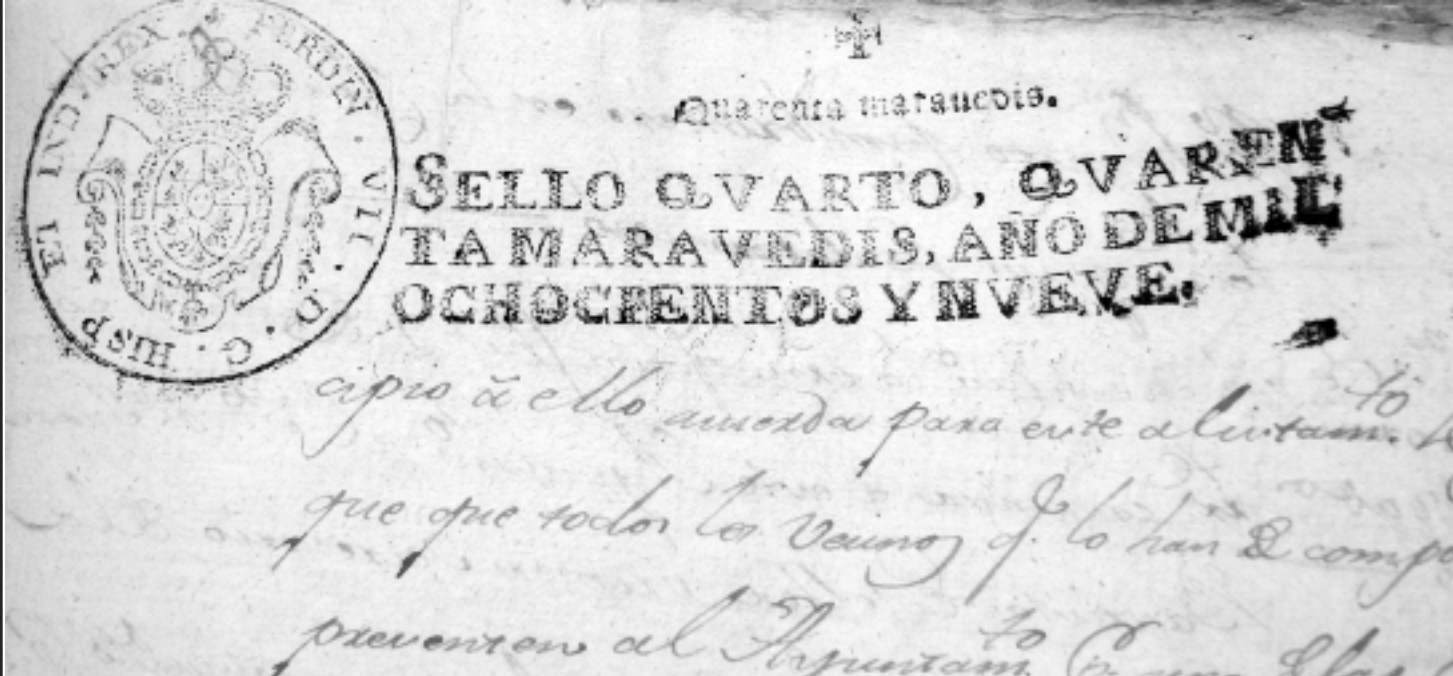 FERDIN · VII · D · G · HISP ET IND · REX
Quarenta marauedis.
SELLO QVARTO, QVAREN
TA MARAVEDIS, AÑO DE MIL
OCHOCIENTOS Y NVEVE.
cipio â ello acuerda para este alistam.to
que que todos los Vecinos q.e lo han de
presenten al Ayuntam.to